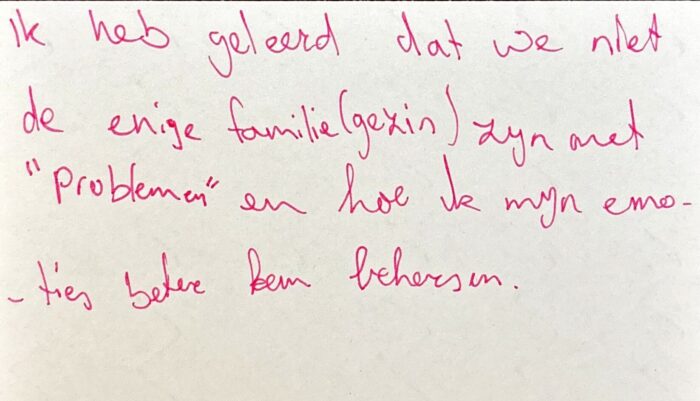 Ik heb geleerd dat we niet
de enige familie (gezin) zyn met
"Problemen" en hoe ik myn emo-
-ties betere kem behersen.